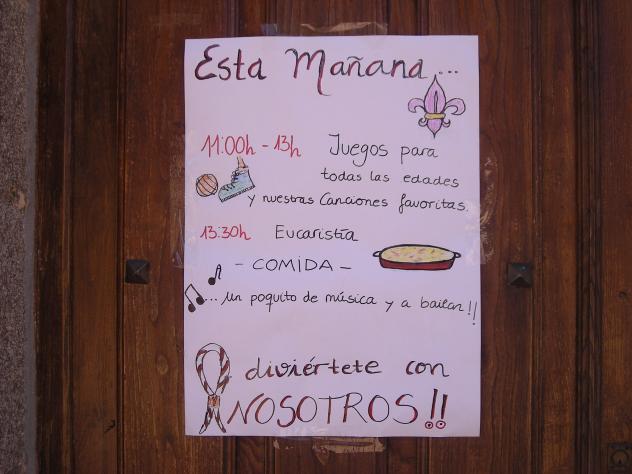 Esta Mañana...
11:00h - 13h Juegos para
todas las edades
y nuestras Canciones favoritas.
13:30h Eucaristía
- COMIDA -
... un poquito de música y a bailar!!
diviértete con
NOSOTROS!!